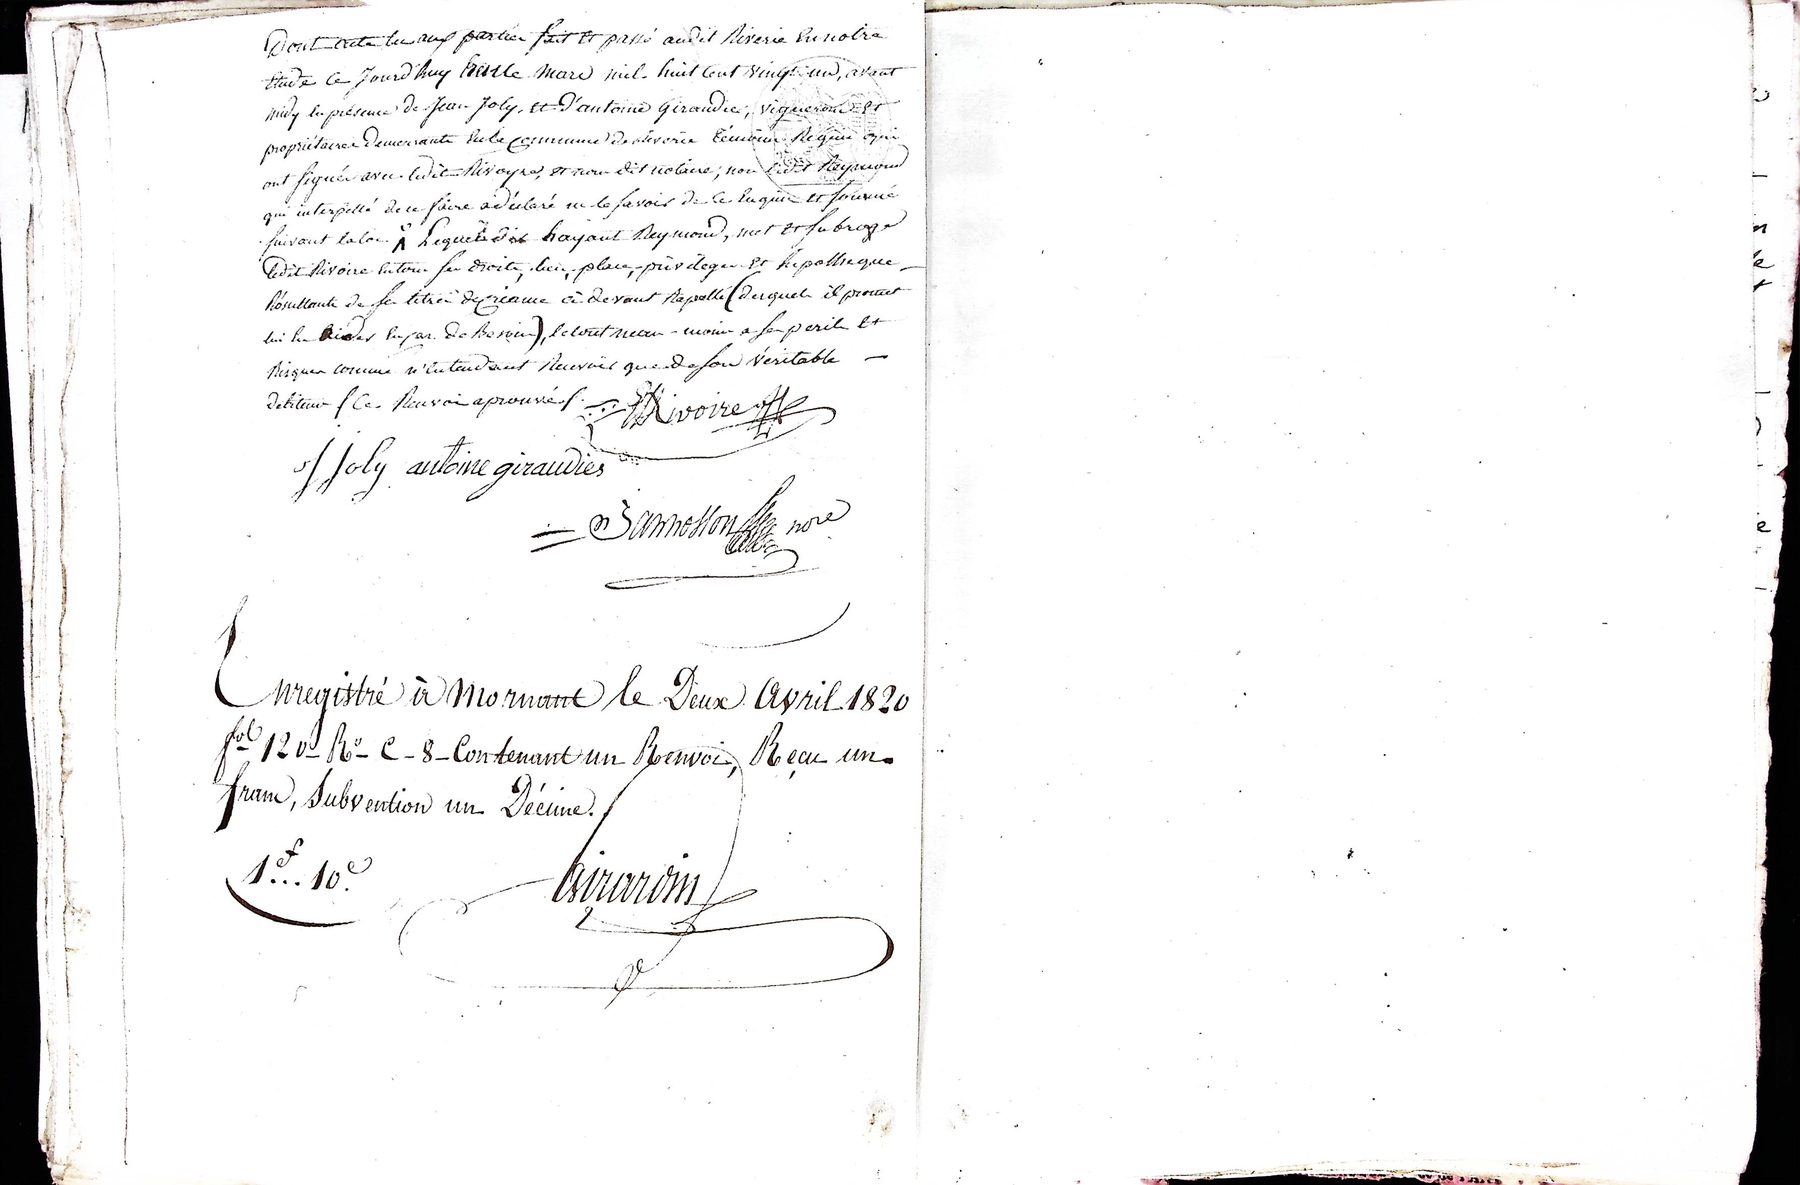 Dont acte lu aux parties fait et passé audit Riverie en notre
Etude ce jourd'huy mars mil huit cent vingt un, avant
midy en présence de Jean Joly, et d'antoine Giraudier, vignerons et
propriétaires demeurants en la commune de Riverie témoins Requis qui
ont signés avec ledit Rivoyre, et nous dit notaire; non ledit Reymond
qui interpellé de ce faire a déclaré ne le savoir de ce Enquis et sommé
suivant la loi. Lequel dit Reymond, met et subroge
ledit Rivoire en tous ses droits, lieu, place, privilèges et hipothèque
Résultante de ses titres de créance ci devant Rapellé (desquels il promet
lui en aider en cas de Besoin), le tout neanmoins a ses perils et
Risques comme n'entendant Recevoir que de son véritable
debiteur / Ce Renvoi aprouvé /.
Rivoire
J Joly antoine giraudier
nore
Enregistré à Mornant le Deux Avril 1820
fol 120 Ro C 8 Contenant un Renvoi, Reçu un
franc, Subvention un Décime.
1f.. 10c.
Girardin